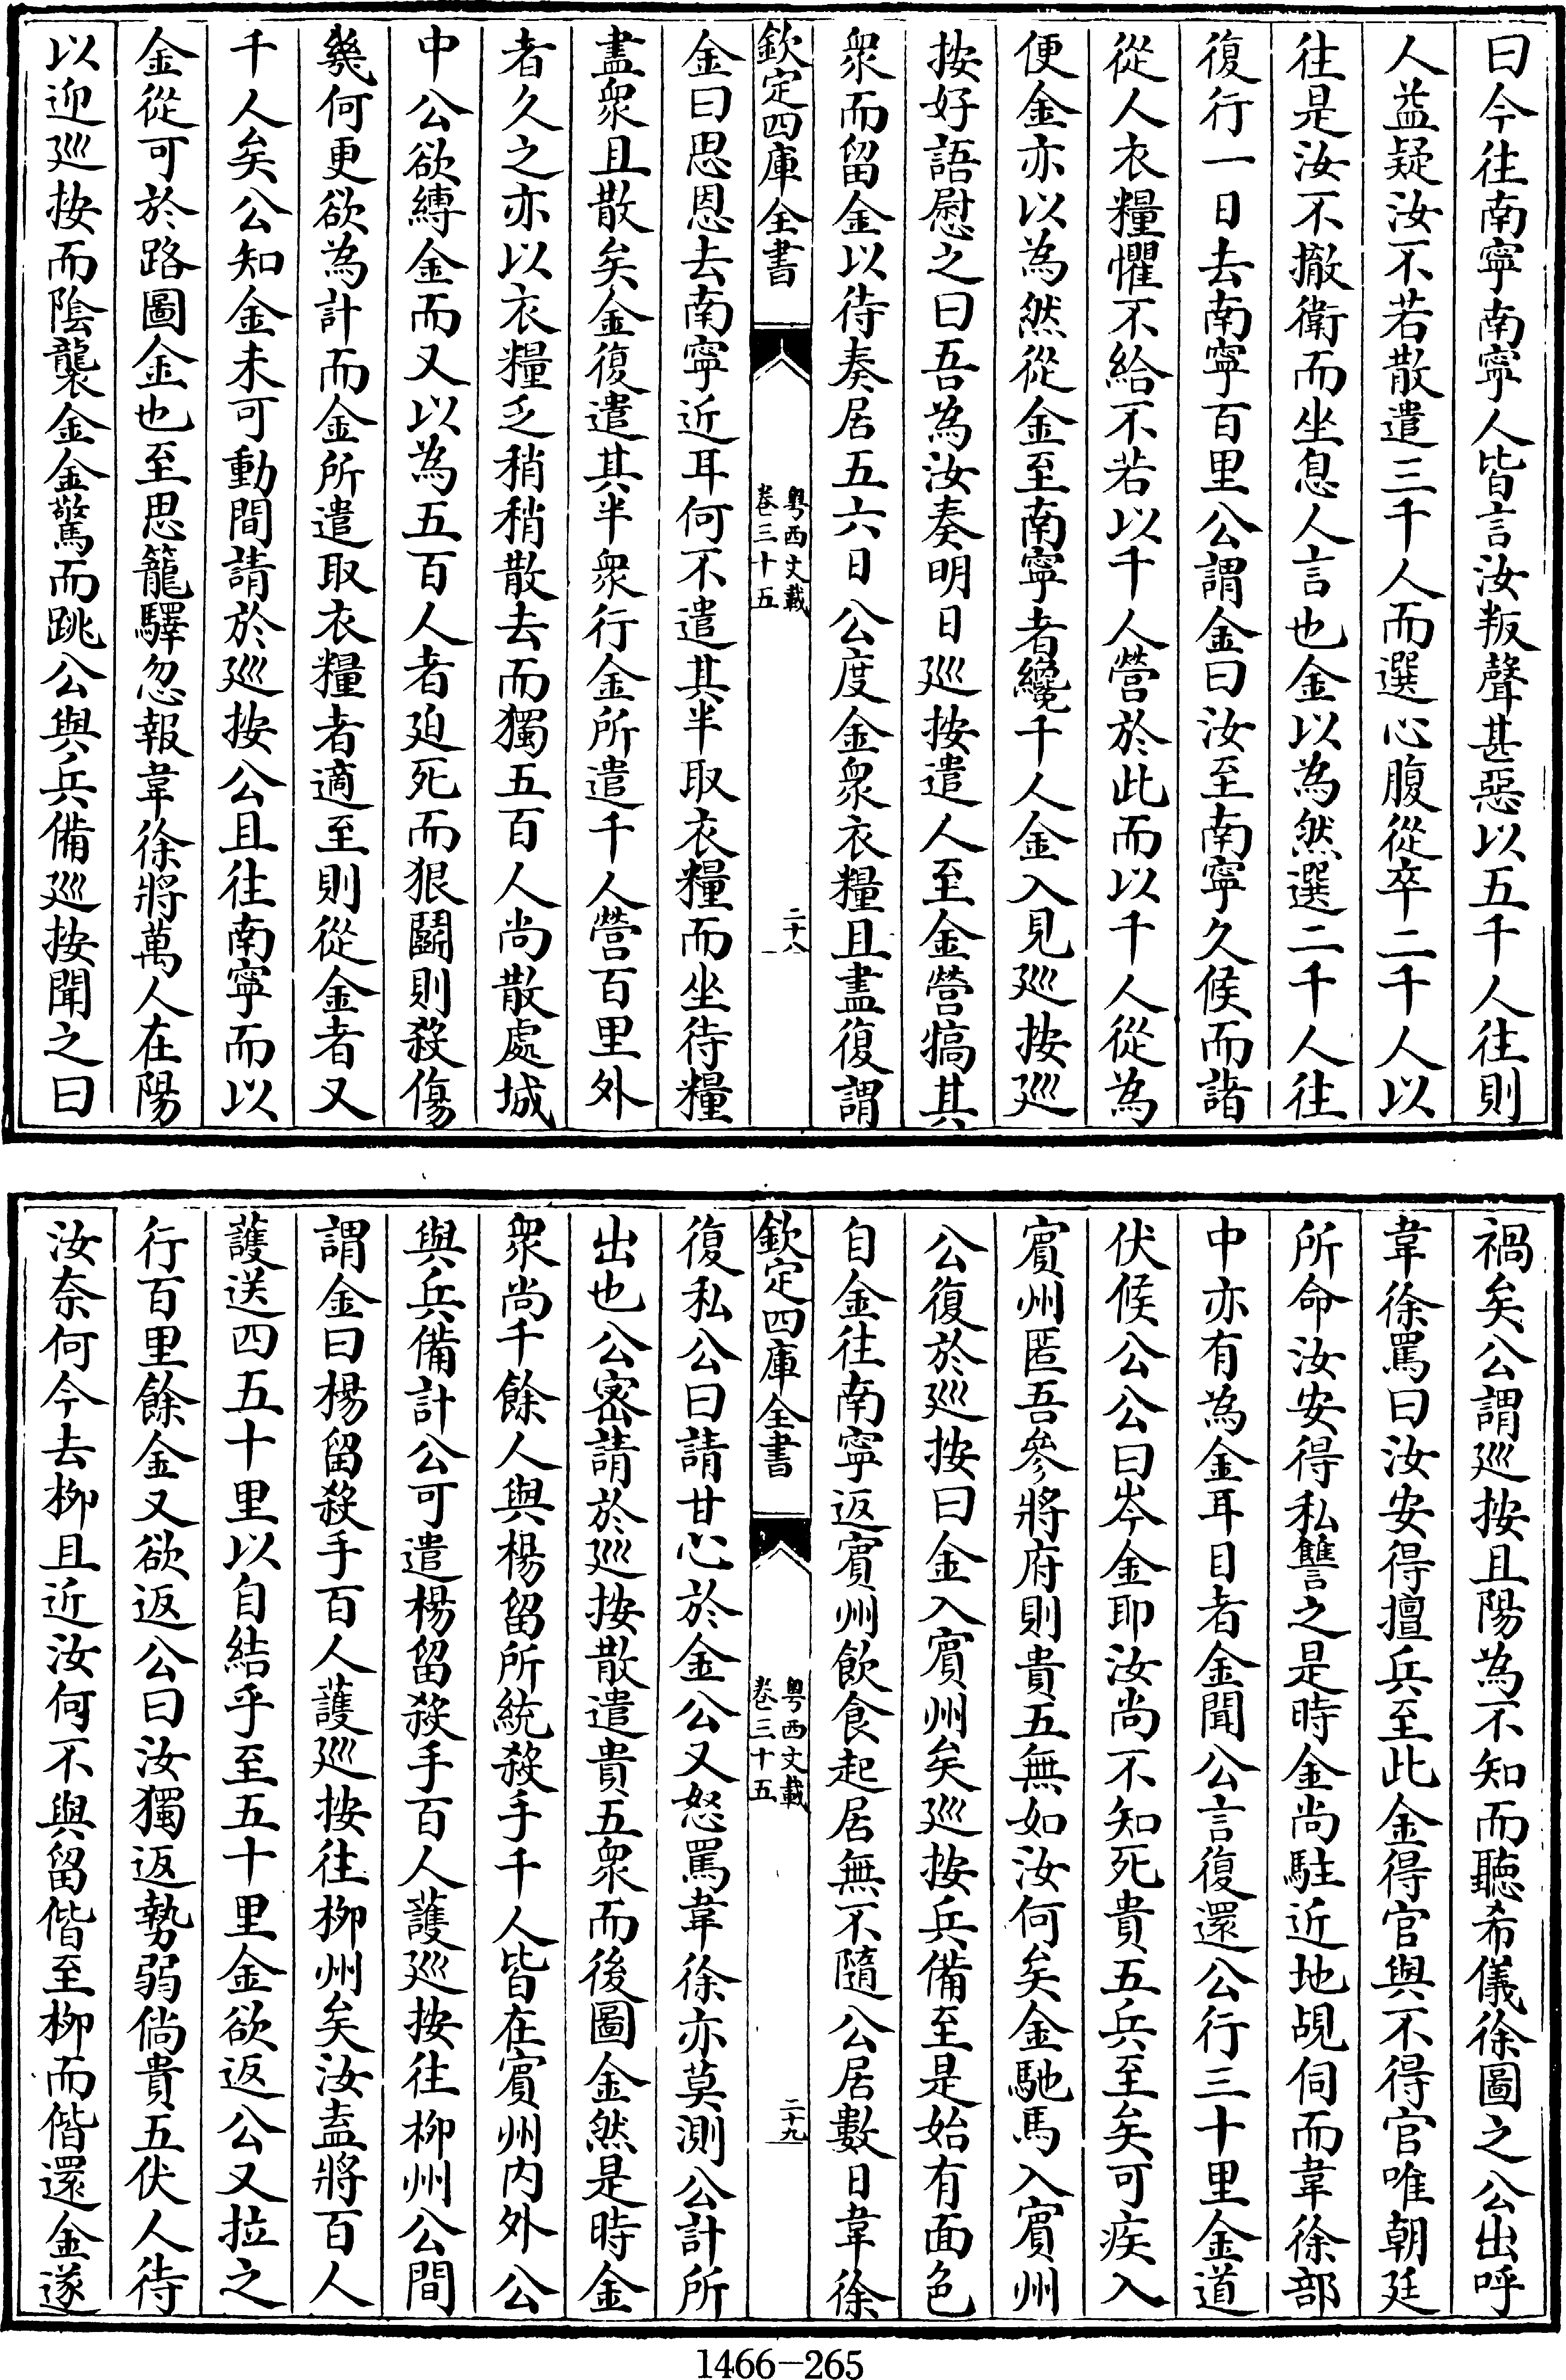 曰今往南寧南寧人皆言汝叛聲甚惡以五千人往則
人益疑汝不若散遣三千人而選心腹從卒二千人以
往是汝不撤衛而坐息人言也金以為然選二千人往
復行一日去南寧百里公謂金曰汝至南寧久候而諸
從人衣糧懼不給不若以千人營於此而以千人從為
便金亦以為然從金至南寧者纔千人金入見巡按巡
按好語慰之曰吾為汝奏明日巡按遣人至金營犒其
衆而留金以待奏居五六日公度金衆衣糧且盡復謂
欽定四庫全書
粤西文載
卷三十五
二十八
金曰思恩去南寧近耳何不遣其半取衣糧而坐待糧
盡衆且散矣金復遣其半衆行金所遣千人營百里外
者久之亦以衣糧乏稍稍散去而獨五百人尚散處城
中公欲縛金而又以為五百人者廹死而狠鬬則殺傷
幾何更欲為計而金所遣取衣糧者適至則從金者又
千人矣公知金未可動間請於巡按公且往南寧而以
金從可於路圖金也至思籠驛忽報韋徐將萬人在陽
以迎巡按而陰襲金金驚而跳公與兵備巡按聞之曰
禍矣公謂巡按且陽為不知而聽希儀徐圖之公出呼
韋徐罵曰汝安得擅兵至此金得官與不得官唯朝廷
所命汝安得私讐之是時金尚駐近地覘伺而韋徐部
中亦有為金耳目者金聞公言復還公行三十里金道
伏候公公曰岑金耶汝尚不知死貴五兵至矣可疾入
賓州匿吾參將府則貴五無如汝何矣金馳馬入賓州
公復於巡按曰金入賓州矣巡按兵備至是始有面色
自金往南寧返賓州飲食起居無不隨公居數日韋徐
欽定四庫全書
粤西文載
卷三十五
二十九
復私公曰請甘心於金公又怒罵韋徐亦莫測公計所
出也公密請於巡按散遣貴五衆而後圖金然是時金
衆尚千餘人與楊留所統殺手千人皆在賓州内外公
與兵備計公可遣楊留殺手百人䕶巡按往柳州公間
謂金曰楊留殺手百人䕶巡按往柳州矣汝盍將百人
䕶送四五十里以自結乎至五十里金欲返公又拉之
行百里餘金又欲返公曰汝獨返勢弱倘貴五伏人待
汝奈何今去柳且近汝何不與留偕至柳而偕還金遂
1466—265